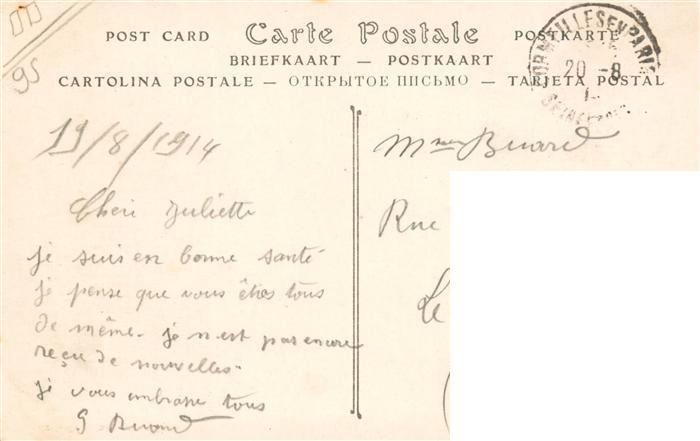 95
POST CARD Carte Postale POSTKARTE
BRIEFKAART — POSTKAART
CARTOLINA POSTALE — ОТКРЫТОЕ ПИСЬМО — TARJETA POSTAL
CORMEILLES EN PARISIS
20 - 8
SEINE
19/8/1914
Cheri Juliette
je suis en bonne santé
je pense que vous êtes tous
de même. je n est pas encore
reçu de nouvelles.
je vous embrasse tous
G Buard
Mme Buard
Rue
Le